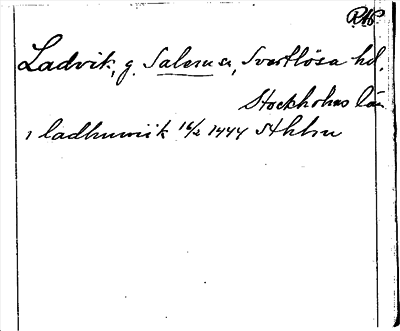 Ladvik, g. Salem sn, Svartlösa hd,
Stockholms län
i ladhuwiik 16/2 1444 Sthbr